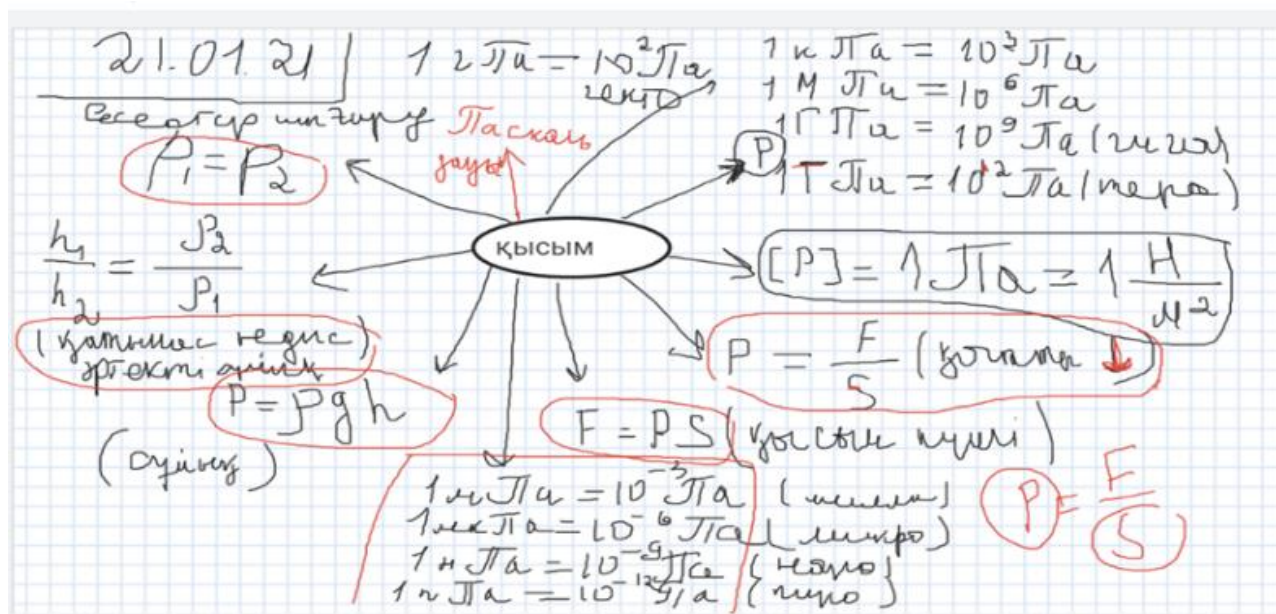 21.01.21
Есептер шығару
1 г Па = 10² Па
гекто
1 к Па = 10³ Па
1 М Па = 10⁶ Па
1 Г Па = 10⁹ Па (гига)
1 Т Па = 10¹² Па (тера)
Паскаль
заңы
P
P₁ = P₂
ҚЫСЫМ
h₁/h₂ = ρ₂/ρ₁
(қатынас ыдыс)
әртекті сұйық
[P] = 1 Па = 1 Н/м²
P = F/S (қатты ↓)
P = ρgh
(сұйық)
F = PS (қысым күші)
P = F/S
1 м Па = 10⁻³ Па (милли)
1 мк Па = 10⁻⁶ Па (микро)
1 н Па = 10⁻⁹ Па (нано)
1 п Па = 10⁻¹² Па (пико)